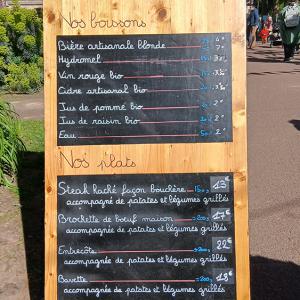 Nos boissons
Bière artisanale blonde 4€
Hydromel
Vin rouge bio
Cidre artisanal bio
Jus de pomme bio 2€
Jus de raisin bio 2€
Eau 2€
Nos plats
Steak haché façon bouchère 150g 13€
accompagné de patates et légumes grillés
Brochette de bœuf maison 200g 17€
accompagné de patates et légumes grillés
Entrecôte 22€
accompagné de patates et légumes grillés
Bavette 200g
accompagné de patates et légumes grillés